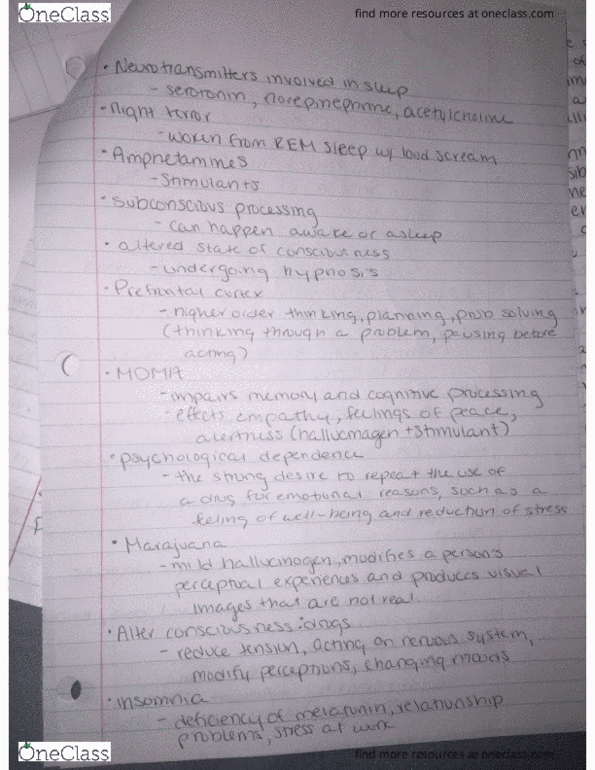 OneClass
find more resources at oneclass.com
• Neurotransmitters involved in sleep
- serotonin, norepinephrine, acetylcholine
• Night terror
- woken from REM sleep w/ loud scream
• Amphetammes
- Stimulants
• Subconscious processing
- can happen awake or asleep
• altered state of consciousness
- undergoing hypnosis
• Prefrontal cortex
- higher order thinking, planning, prob solving
(thinking through a problem, pausing before
acting)
• MDMA
- impairs memory and cognitive processing
- effects empathy, feelings of peace,
alertness (hallucinagen + stimulant)
• psychological dependence
- the strong desire to repeat the use of
a drug for emotional reasons, such as a
feeling of well-being and reduction of stress
• Marajuana
- mild hallucinogen, modifies a person's
perceptual experiences and produces visual
images that are not real
• Alter consciousness: drugs
- reduce tension, acting on nervous system,
modify perceptions, changing moods
• insomnia
- deficiency of melatonin, relationship
problems, stress at work
OneClass
find more resources at oneclass.com